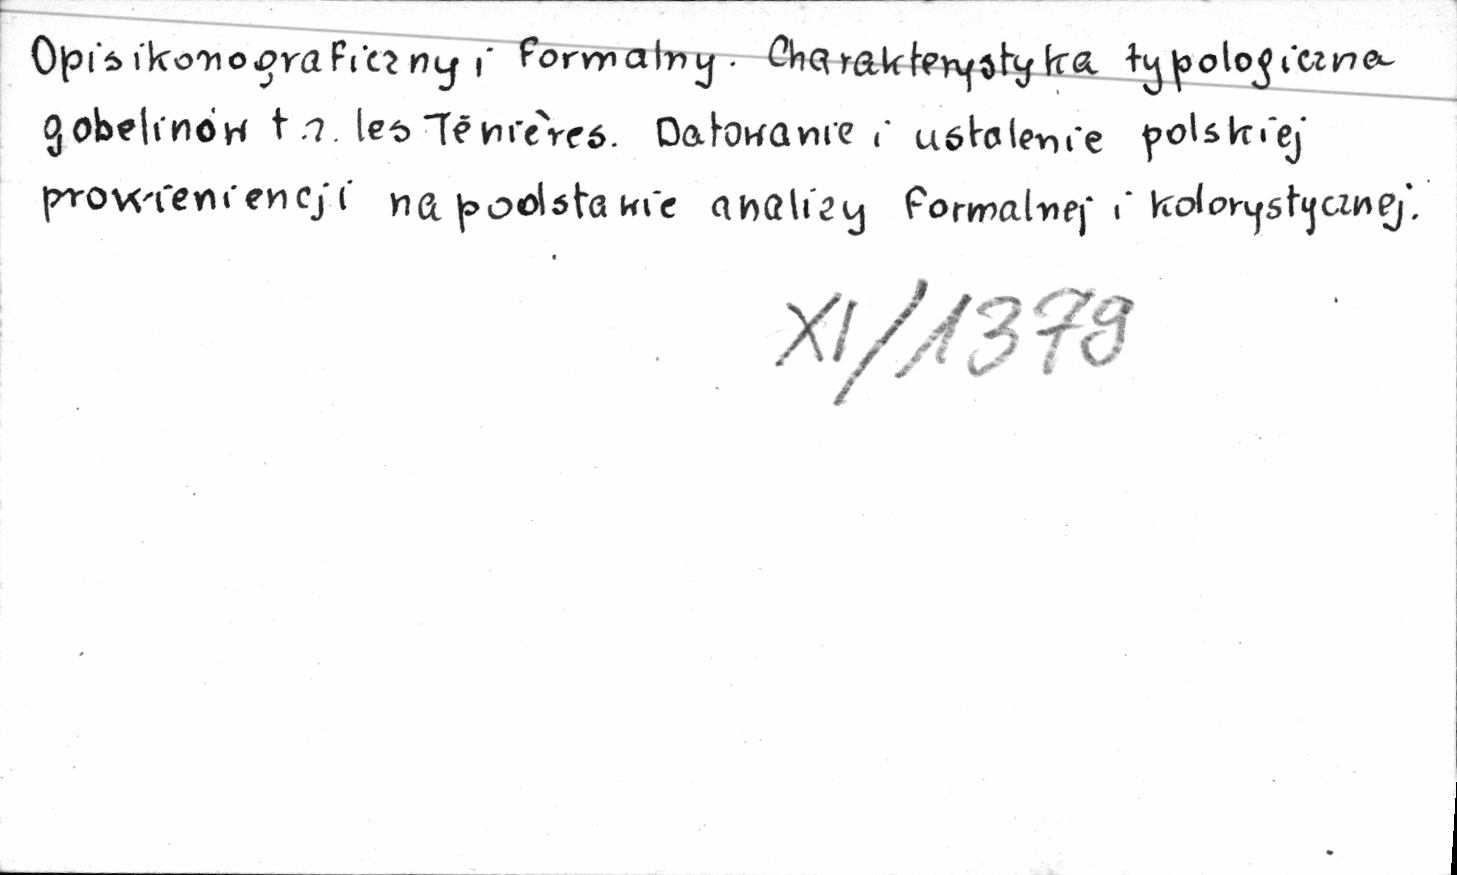 Opis ikonograficzny i formalny. Charakterystyka typologiczna
gobelinów t.z. les Tēnières. Datowanie i ustalenie polskiej
prowieniencji na podstawie analizy formalnej i kolorystycznej.
XI/1379